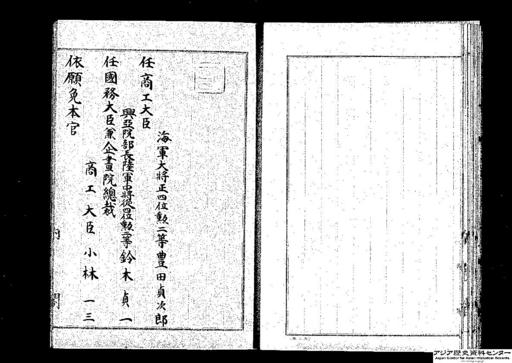 海軍大將正四位勲二等豊田貞次郎
任商工大臣
興亞院部長陸軍中將從四位勲二等鈴木貞一
任國務大臣兼企畫院總裁
商工大臣小林一三
依願免本官
内閣
アジア歴史資料センター
Japan Center for Asian Historical Records